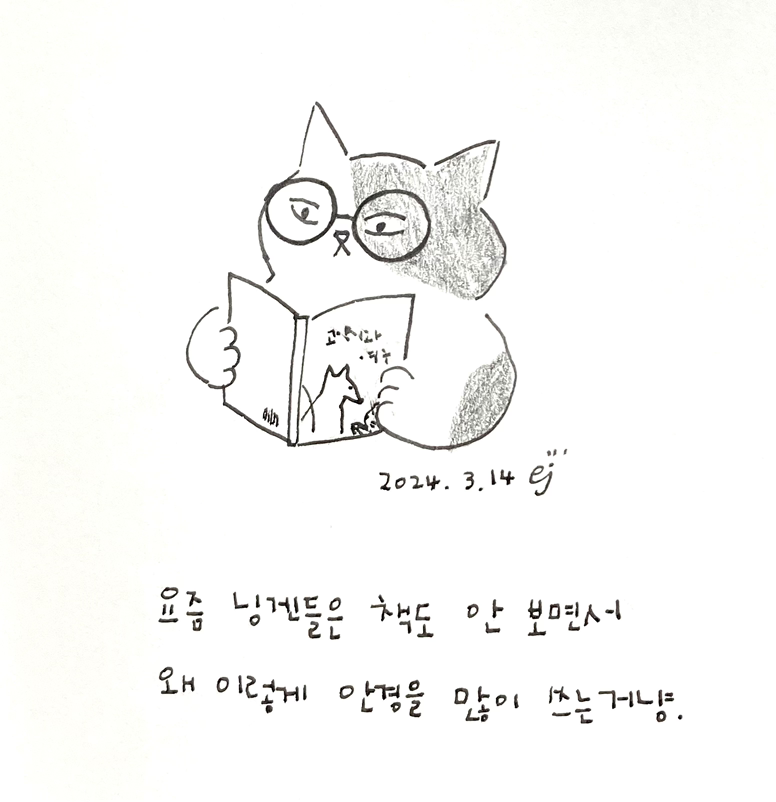 고양이와
2024. 3. 14 ej
요즘 닝겐들은 책도 안 보면서
왜 이렇게 안경을 많이 쓰는거냥.